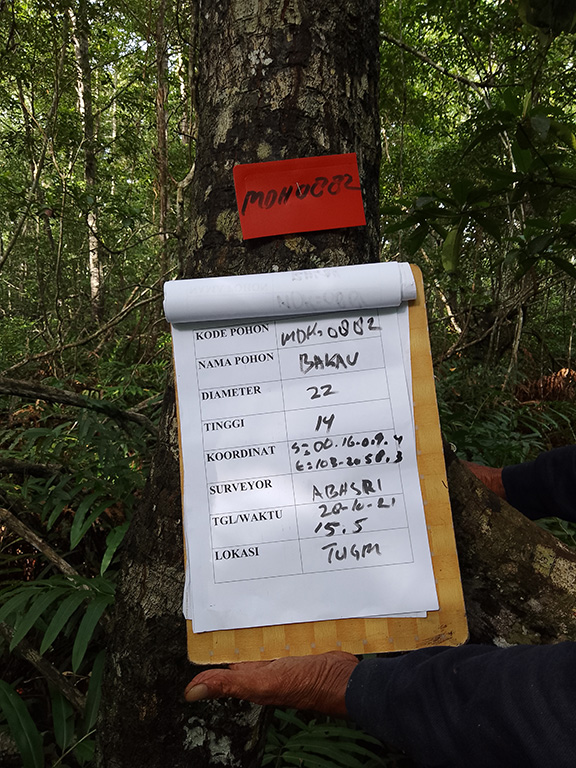 MDH0882
KODE POHON MDH-0882
NAMA POHON BAKAU
DIAMETER 22
TINGGI 14
KOORDINAT S=00.16.09.4
E=103.2058.3
SURVEYOR ABHSRI
TGL/WAKTU 20-10-21
15.5
LOKASI TUGM